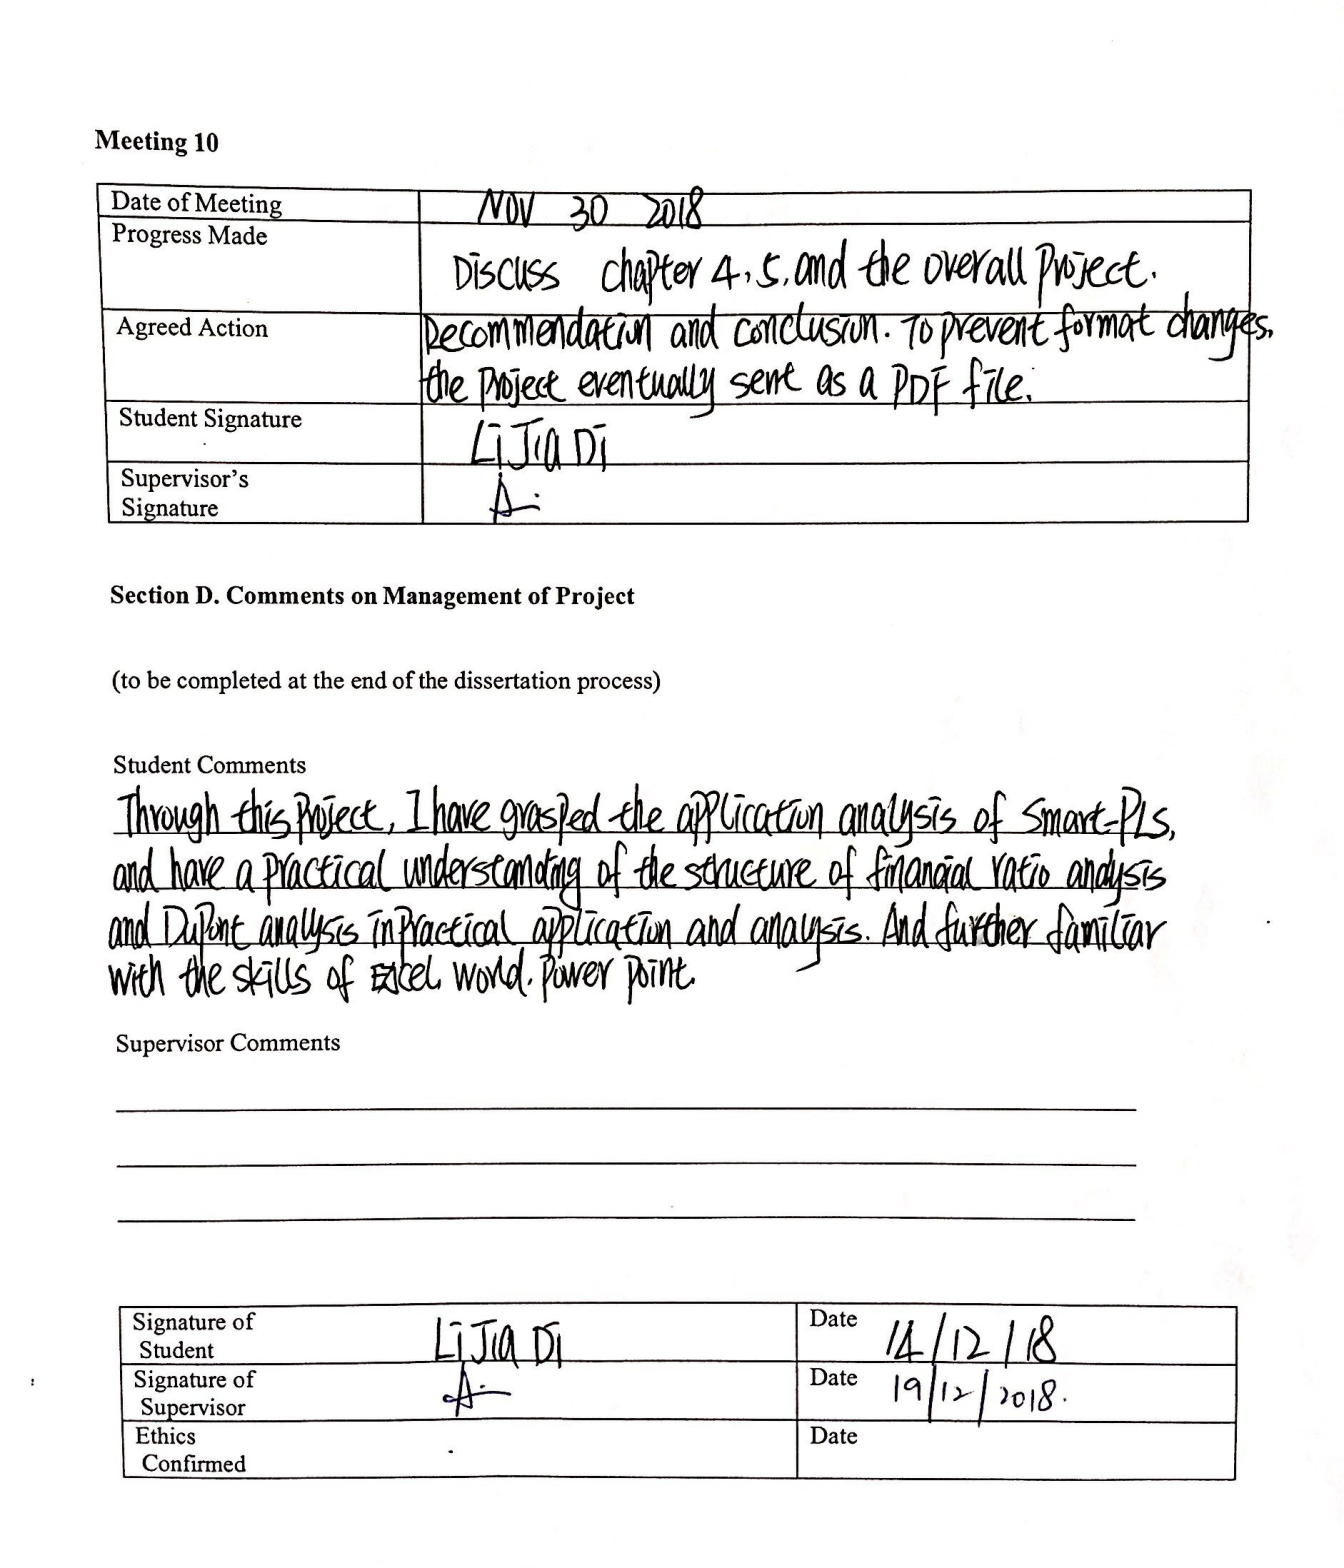 Meeting 10
Date of Meeting NOV 30 2018
Progress Made
Discuss chapter 4, 5, and the overall Project.
Agreed Action Recommendation and conclusion. To prevent format changes,
the project eventually sent as a PDF file.
Student Signature
Li Jia Di
Supervisor's
Signature
Section D. Comments on Management of Project
(to be completed at the end of the dissertation process)
Student Comments
Through this Project, I have grasped the application analysis of Smart-PLS,
and have a practical understanding of the structure of financial ratio analysis
and DuPont analysis in Practical application and analysis. And further familiar
with the skills of Excel. World. Power Point.
Supervisor Comments
Signature of
Student Li Jia Di Date 14/12/18
Signature of
Supervisor Date 19/12/2018.
Ethics
Confirmed Date